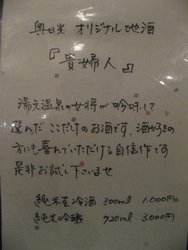 奥日光 オリジナル地酒
『貴婦人』
湯元温泉の女将が吟味して
選んだ ここだけのお酒です。酒好きの
方にも喜んでいただける自信作です
是非お試し下さいませ
純米生冷酒 300ml 1.000円
純米吟醸 720ml 3.000円